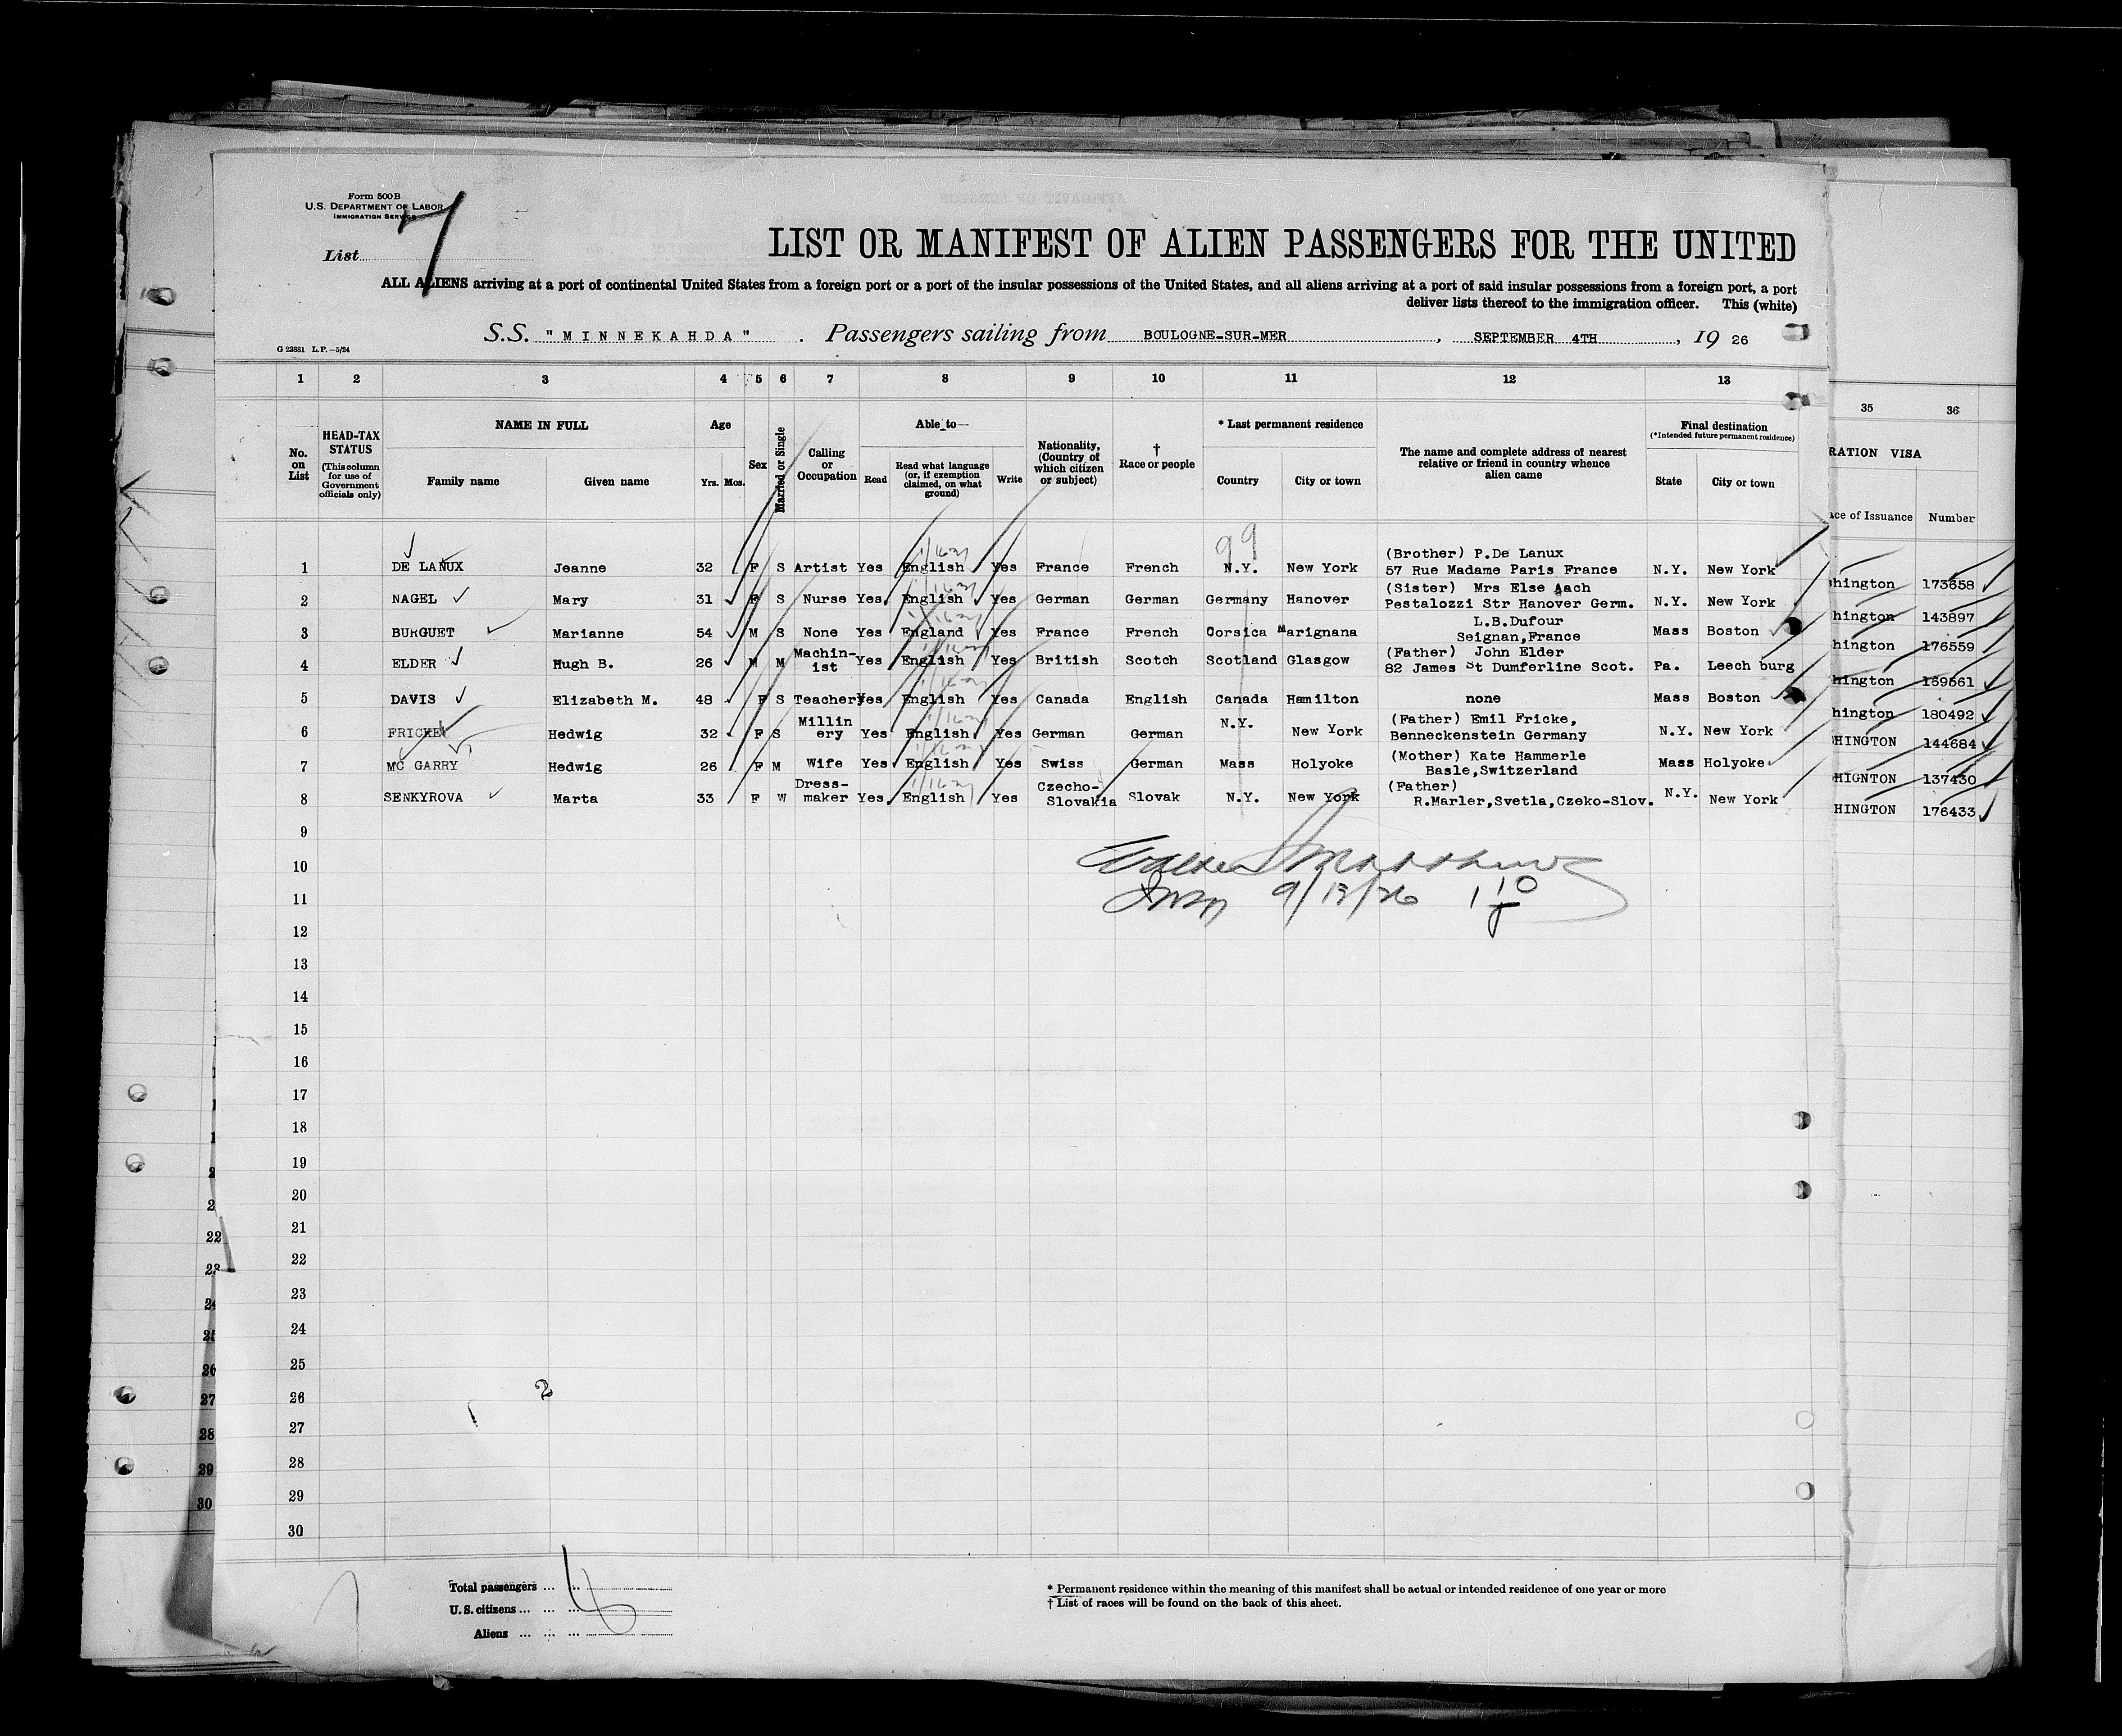 Form 500 B
U.S. DEPARTMENT OF LABOR
IMMIGRATION SERVICE
List 7
LIST OR MANIFEST OF ALIEN PASSENGERS FOR THE UNITED
ALL ALIENS arriving at a port of continental United States from a foreign port or a port of the insular possessions of the United States, and all aliens arriving at a port of said insular possessions from a foreign port, a port
deliver lists thereof to the immigration officer. This (white)
S.S. "MINNEKAHDA". Passengers sailing from BOULOGNE-SUR-MER, SEPTEMBER 4TH, 19 26
G 23881 L.P.—5/24
1 2 3 4 5 6 7 8 9 10 11 12 13
35 36
No. on List
HEAD-TAX STATUS
(This column for use of Government officials only)
NAME IN FULL
Family name Given name
Age
Yrs. Mos.
Sex
Married or Single
Calling or Occupation
Able to—
Read
Read what language (or, if exemption claimed, on what ground)
Write
Nationality, (Country of which citizen or subject)
† Race or people
* Last permanent residence
Country City or town
The name and complete address of nearest relative or friend in country whence alien came
Final destination
(*Intended future permanent residence)
State City or town
RATION VISA
ace of Issuance Number
99
1 DE LANUX Jeanne 32 F S Artist Yes English Yes France French N.Y. New York (Brother) P.De Lanux 57 Rue Madame Paris France N.Y. New York hington 173658
2 NAGEL Mary 31 F S Nurse Yes English Yes German German Germany Hanover (Sister) Mrs Else Aach Pestalozzi Str Hanover Germ. N.Y. New York hington 143897
3 BURGUET Marianne 54 M S None Yes England Yes France French Corsica Marignana L.B.Dufour Seignan,France Mass Boston hington 176559
4 ELDER Hugh B. 26 M M Machin-ist Yes English Yes British Scotch Scotland Glasgow (Father) John Elder 82 James St Dumferline Scot. Pa. Leech burg hington 159561
5 DAVIS Elizabeth M. 48 F S Teacher Yes English Yes Canada English Canada Hamilton none Mass Boston hington 180492
6 FRICKE Hedwig 32 F S Millin ery Yes English Yes German German N.Y. New York (Father) Emil Fricke, Benneckenstein Germany N.Y. New York HINGTON 144684
7 MC GARRY Hedwig 26 F M Wife Yes English Yes Swiss German Mass Holyoke (Mother) Kate Hammerle Basle,Switzerland Mass Holyoke HIGNTON 137430
8 SENKYROVA Marta 33 F W Dress-maker Yes English Yes Czecho-Slovakia Slovak N.Y. New York (Father) R.Marler,Svetla,Czeko-Slov. N.Y. New York HINGTON 176433
9
10
11 9/13/26
12
13
14
15
16
17
18
19
20
21
22
23
24
25
26
27
28
29
30
22
24
26
27
28
29
30
2
Total passengers
U.S. citizens
Aliens
* Permanent residence within the meaning of this manifest shall be actual or intended residence of one year or more
† List of races will be found on the back of this sheet.